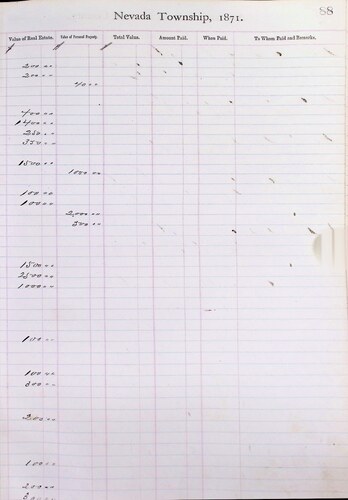 Nevada Township, 1871.
88
Value of Real Estate. Value of Personal Property. Total Value. Amount Paid. When Paid. To Whom Paid and Remarks.
200 00
200 00
400 00
1400 00
250 00
350 00
1500 00
1000 00
100 00
100 00
2,000 00
500 00
1500 00
2500 00
1000 00
100 00
100 00
200 00
100 00
200 00